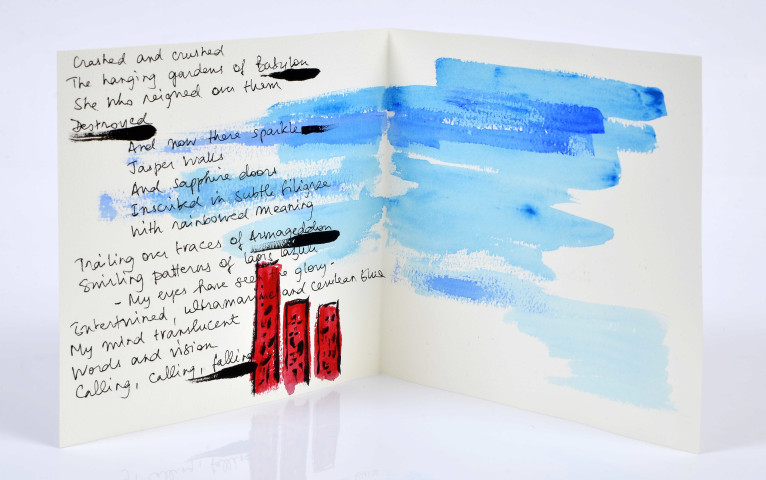 Crashed and crushed
The hanging gardens of Babylon
She who reigned over them
Destroyed
And now there sparkle
Jasper walls
And sapphire doors
Inscribed in subtle filigree
With rainbowed meaning
Trailing over traces of Armageddon
Smiling patterns of lapis lazuli
- My eyes have seen the glory -
Intertwined, ultramarine and cerulean blue
My mind translucent
Words and vision
Calling, calling, falling